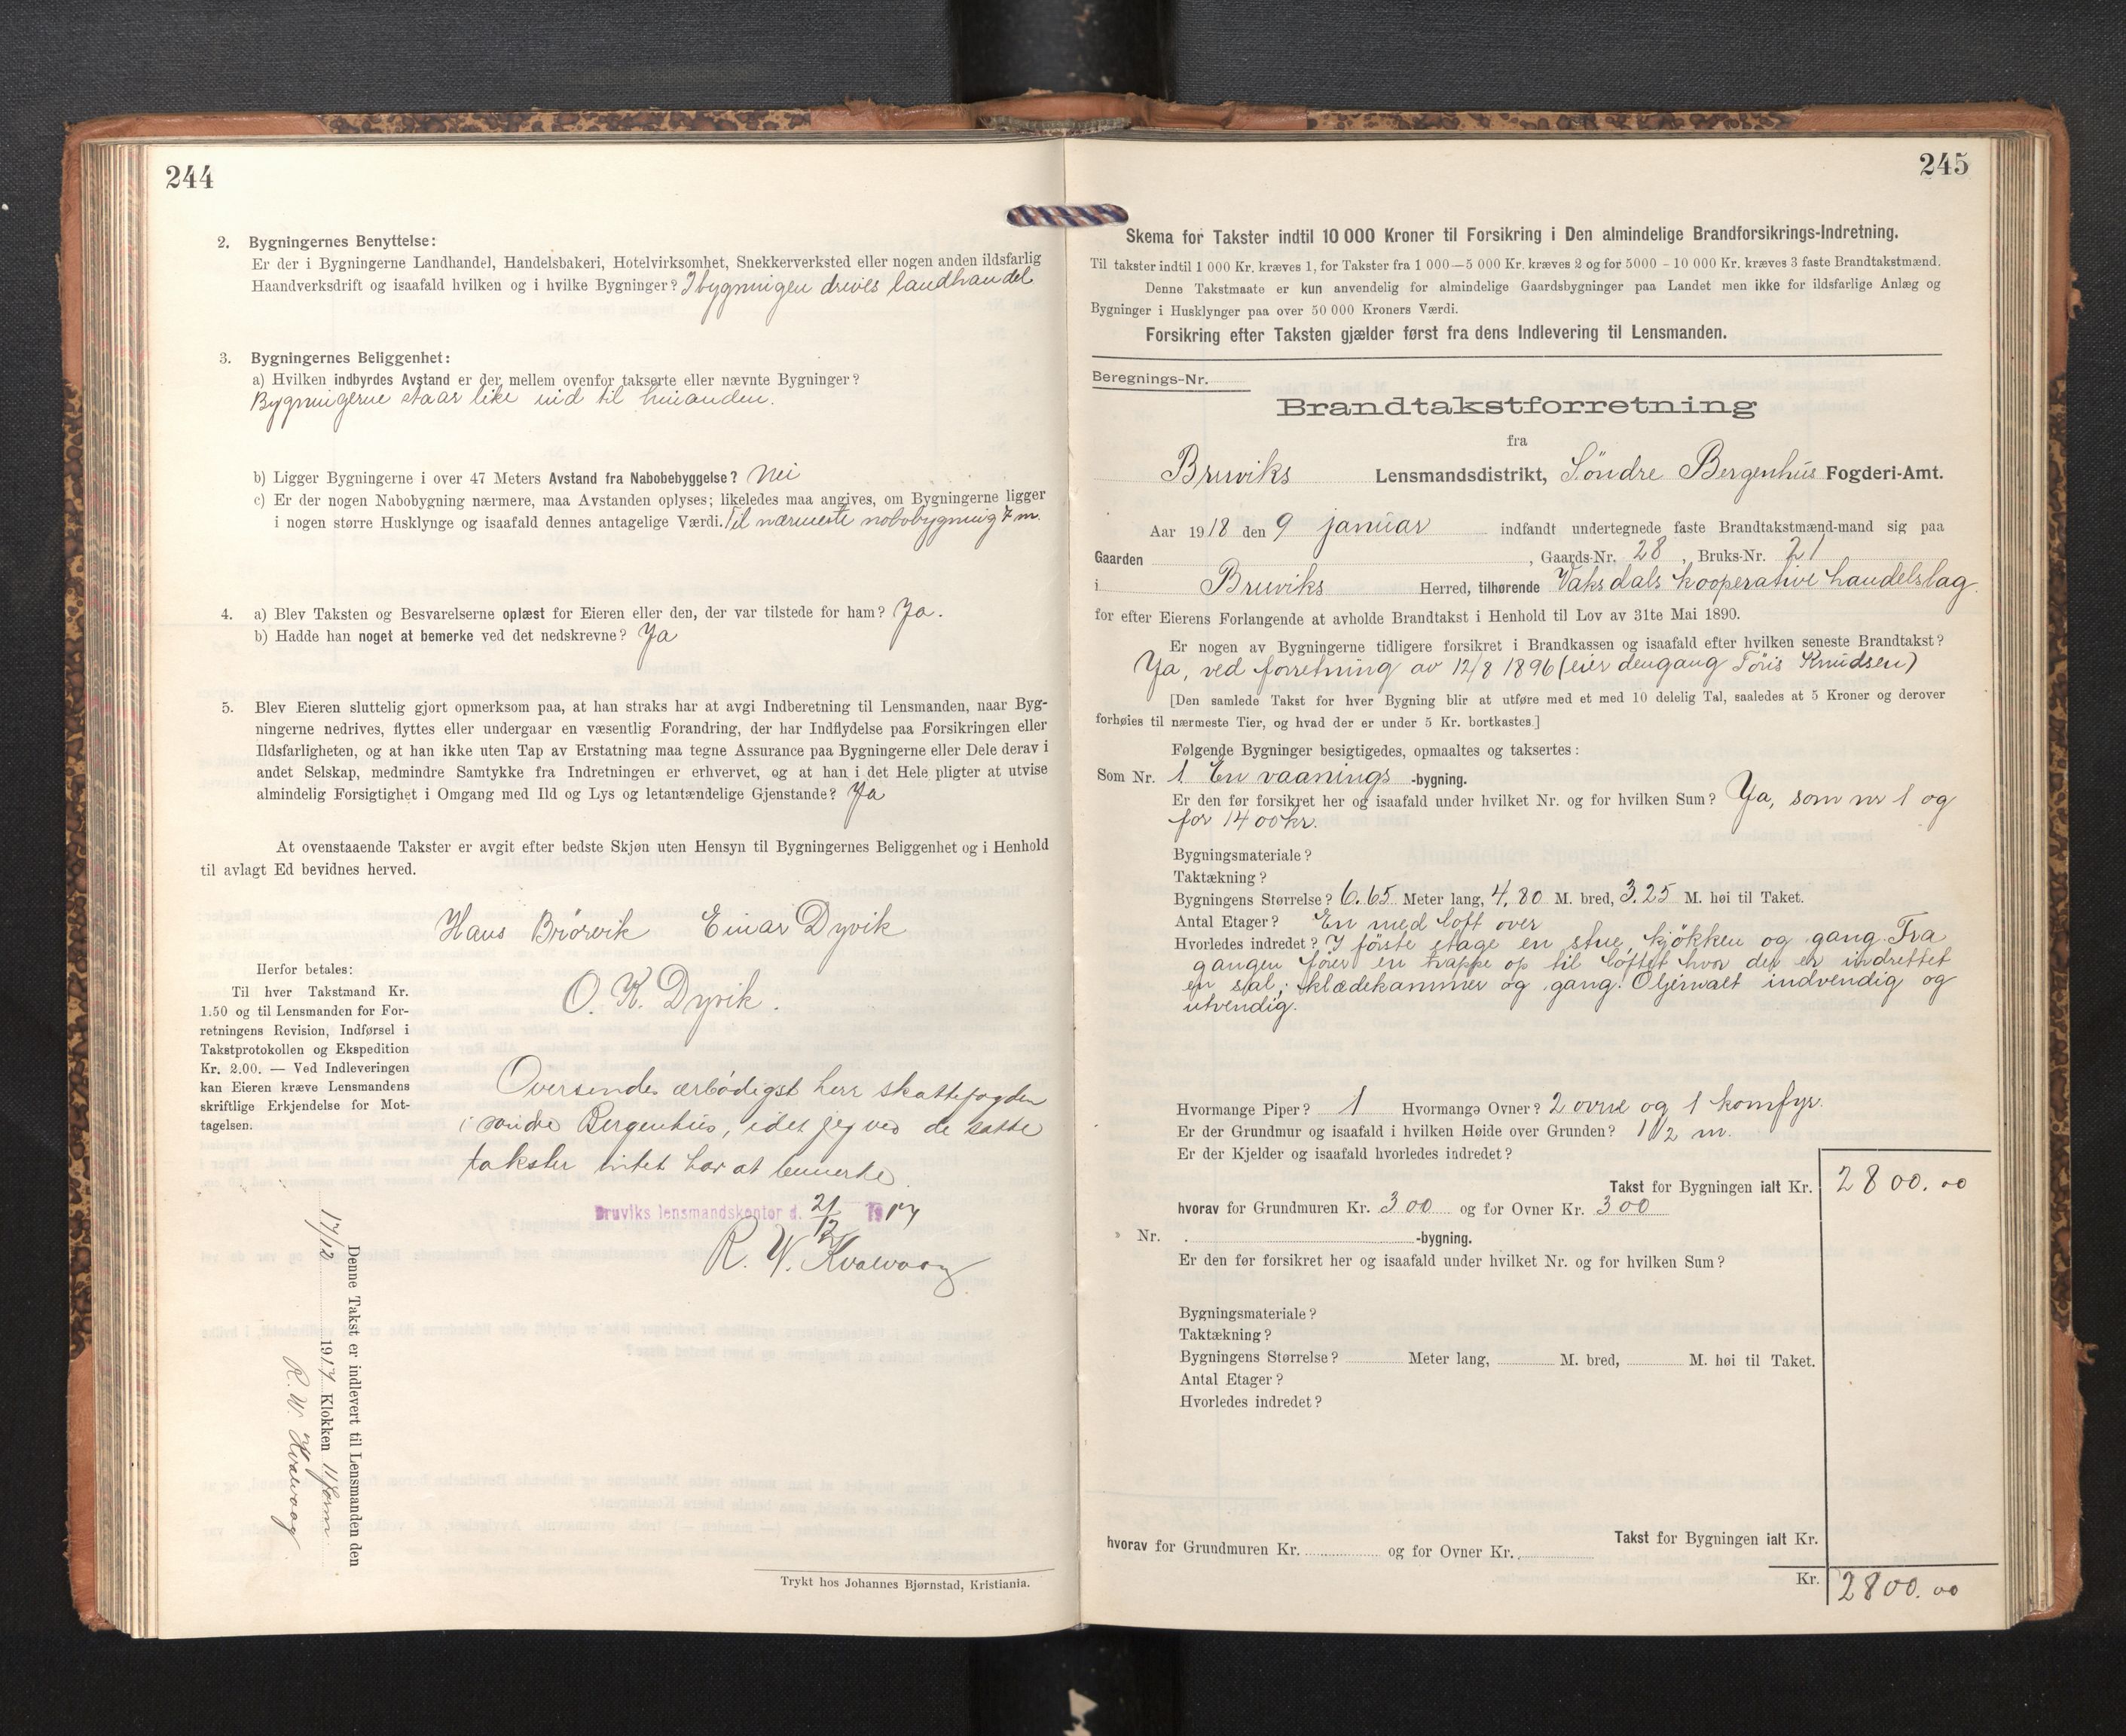 244
2. Bygningernes Benyttelse:
Er der i Bygningerne Landhandel, Handelsbakeri, Hotelvirksomhet, Snekkerverksted eller nogen anden ildsfarlig
Haandverksdrift og isaafald hvilken og i hvilke Bygninger? I bygningen drives landhandel
3. Bygningernes Beliggenhet:
a) Hvilken indbyrdes Avstand er der mellem ovenfor takserte eller nævnte Bygninger?
Bygningerne staar like ind til hinanden.
b) Ligger Bygningerne i over 47 Meters Avstand fra Nabobebyggelse? Nei
c) Er der nogen Nabobygning nærmere, maa Avstanden oplyses; likeledes maa angives, om Bygningerne ligger
i nogen større Husklynge og isaafald dennes antagelige Værdi. Til nærmeste nobobygning 7 m.
4. a) Blev Taksten og Besvarelserne oplæst for Eieren eller den, der var tilstede for ham? Ja.
b) Hadde han noget at bemerke ved det nedskrevne? Ja
5. Blev Eieren sluttelig gjort opmerksom paa, at han straks har at avgi Indberetning til Lensmanden, naar Byg-
ningerne nedrives, flyttes eller undergaar en væsentlig Forandring, der har Indflydelse paa Forsikringen eller
Ildsfarligheten, og at han ikke uten Tap av Erstatning maa tegne Assurance paa Bygningerne eller Dele derav i
andet Selskap, medmindre Samtykke fra Indretningen er erhvervet, og at han i det Hele pligter at utvise
almindelig Forsigtighet i Omgang med Ild og Lys og letantændelige Gjenstande? Ja
At ovenstaaende Takster er avgit efter bedste Skjøn uten Hensyn til Bygningernes Beliggenhet og i Henhold
til avlagt Ed bevidnes herved.
Hans Brörvik Einar Dyvik
O. K. Dyvik.
Herfor betales:
Til hver Takstmand Kr.
1.50 og til Lensmanden for For-
retningens Revision, Indførsel i
Takstprotokollen og Ekspedition
Kr. 2.00. — Ved Indleveringen
kan Eieren kræve Lensmandens
skriftlige Erkjendelse for Mot-
tagelsen.
Oversendes ærbödigst herr skattefogden
i söndre Bergenhus, idet jeg ved de satte
takster intet har at bemerke.
Bruviks lensmandskontor d. 21/12 1917
R. W. Kvalvaag
Denne Takst er indlevert til Lensmanden den
17/12 1917 Klokken 11 form
R. W. Kvalvaag
Trykt hos Johannes Bjørnstad, Kristiania.
245
Skema for Takster indtil 10 000 Kroner til Forsikring i Den almindelige Brandforsikrings-Indretning.
Til takster indtil 1 000 Kr. kræves 1, for Takster fra 1 000—5 000 Kr. kræves 2 og for 5000 - 10 000 Kr. kræves 3 faste Brandtakstmænd.
Denne Takstmaate er kun anvendelig for almindelige Gaardsbygninger paa Landet men ikke for ildsfarlige Anlæg og
Bygninger i Husklynger paa over 50 000 Kroners Værdi.
Forsikring efter Taksten gjælder først fra dens Indlevering til Lensmanden.
Beregnings-Nr.
Brandtakstforretning
fra
Bruviks Lensmandsdistrikt, Söndre Bergenhus Fogderi-Amt.
Aar 1918 den 9 januar indfandt undertegnede faste Brandtakstmænd-mand sig paa
Gaarden , Gaards-Nr. 28 , Bruks-Nr. 21
i Bruviks Herred, tilhørende Vaksdals kooperative handelslag
for efter Eierens Forlangende at avholde Brandtakst i Henhold til Lov av 31te Mai 1890.
Er nogen av Bygningerne tidligere forsikret i Brandkassen og isaafald efter hvilken seneste Brandtakst?
Ja, ved forretning av 12/8 1896 (eier dengang Töris Knudsen)
[Den samlede Takst for hver Bygning blir at utføre med et med 10 delelig Tal, saaledes at 5 Kroner og derover
forhøies til nærmeste Tier, og hvad der er under 5 Kr. bortkastes.]
Følgende Bygninger besigtigedes, opmaaltes og taksertes:
Som Nr. 1 En vaanings -bygning.
Er den før forsikret her og isaafald under hvilket Nr. og for hvilken Sum? Ja, som nr 1 og
for 1400 kr.
Bygningsmateriale?
Taktækning?
Bygningens Størrelse? 6.65 Meter lang, 4,80 M. bred, 3.25 M. høi til Taket.
Antal Etager? En med loft over
Hvorledes indredet? I förste etage en stue, kjökken og gang. Fra
gangen förer en trappe op til loftet hvor der er indrettet
en sal, klædekammer og gang. Oljemalt indvendig og
utvendig.
Hvormange Piper? 1 Hvormange Ovner? 2 ovne og 1 komfyr.
Er der Grundmur og isaafald i hvilken Høide over Grunden? 1 1/2 m.
Er der Kjelder og isaafald hvorledes indredet?
Takst for Bygningen ialt Kr. 2800.00
hvorav for Grundmuren Kr. 300 og for Ovner Kr. 300
Nr. -bygning.
Er den før forsikret her og isaafald under hvilket Nr. og for hvilken Sum?
Bygningsmateriale?
Taktækning?
Bygningens Størrelse? Meter lang, M. bred, M. høi til Taket.
Antal Etager?
Hvorledes indredet?
Takst for Bygningen ialt Kr.
hvorav for Grundmuren Kr. og for Ovner Kr.
Kr. 2800.00